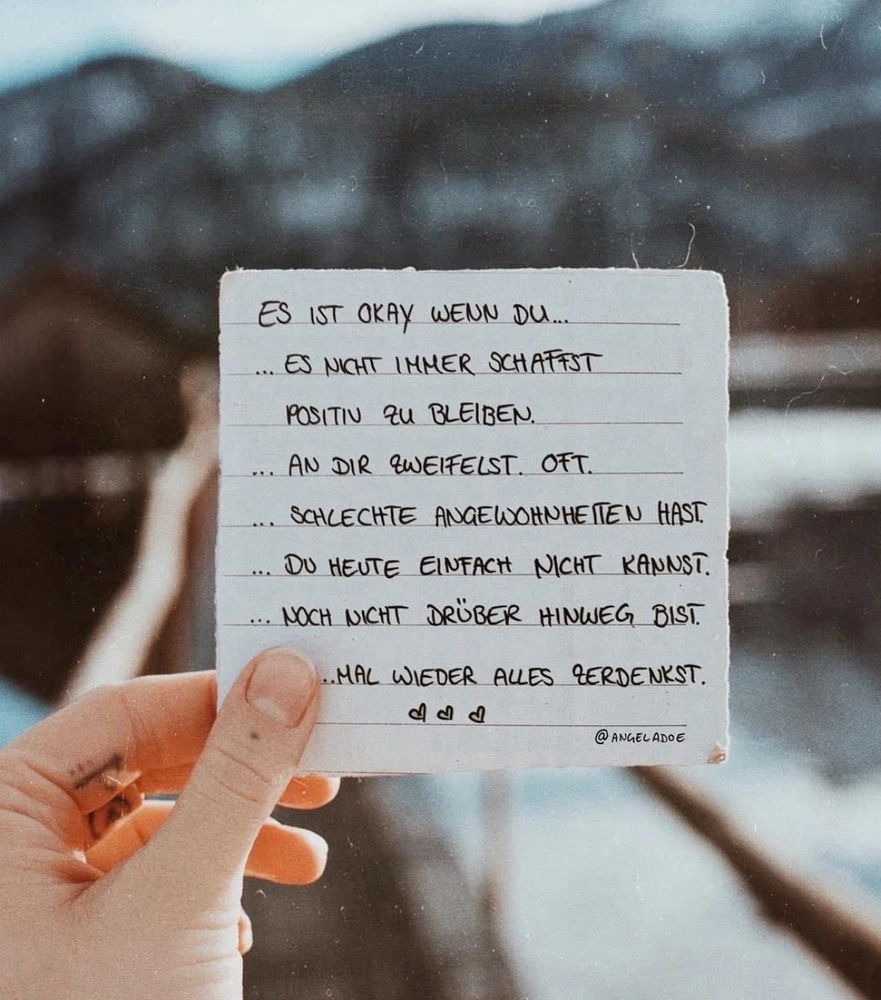 ES IST OKAY WENN DU...
... ES NICHT IMMER SCHAFFST
POSITIV ZU BLEIBEN.
... AN DIR ZWEIFELST. OFT.
... SCHLECHTE ANGEWOHNHEITEN HAST.
... DU HEUTE EINFACH NICHT KANNST.
... NOCH NICHT DRÜBER HINWEG BIST.
...MAL WIEDER ALLES ZERDENKST.
@ANGELADOE